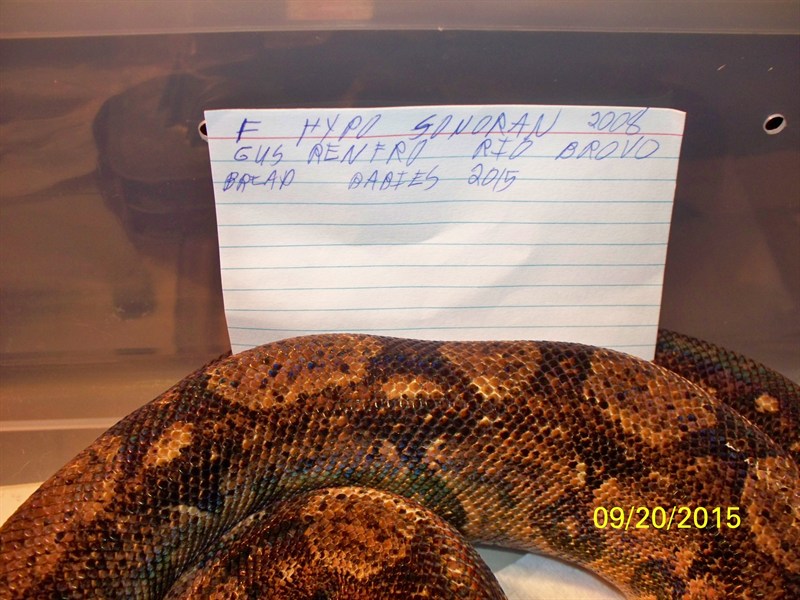 F HYPO SONORAN 2008
GUS RENFRO RIO BROVO
BREAD BABIES 2015
09/20/2015